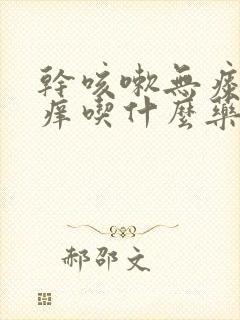 幹咳嗽無痰
癢喫什麼藥
郝邵文